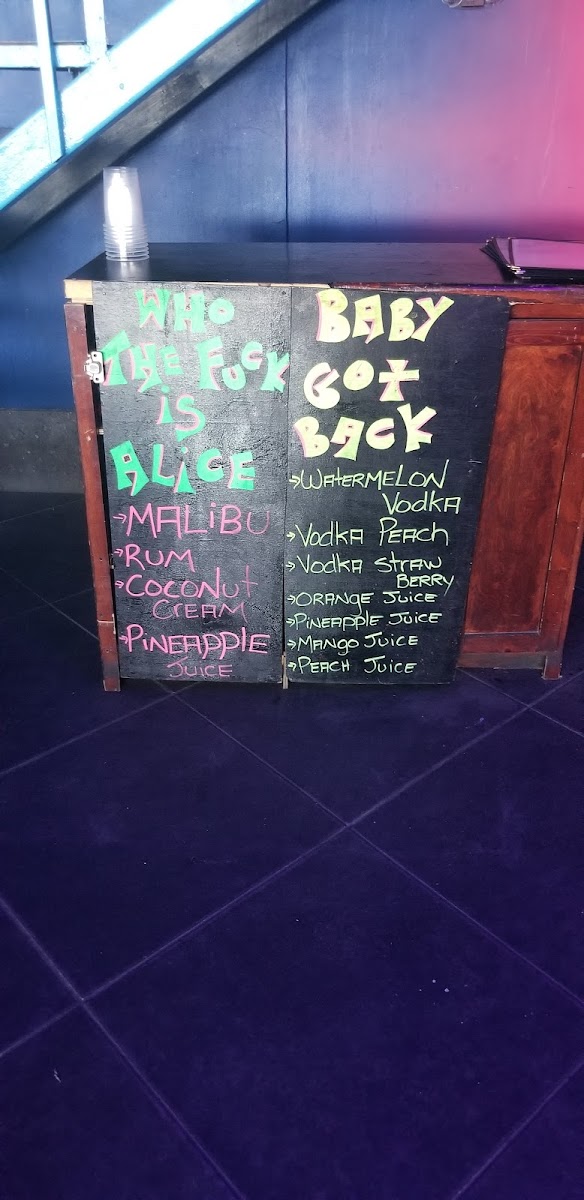 WHO
THE FUCK
iS
ALiCE
→MALiBU
→RUM
→COCONUT
CREAM
→PiNEAPPLE
JUICE
BABY
GOt
BACK
→WAtERMELON
VodKA
→VodKA PEACH
→VodKA StRAW
BERRY
→ORANGE JuiCE
→PiNEAPPLE JUiCE
→MANGO JUICE
→PEACH JUICE